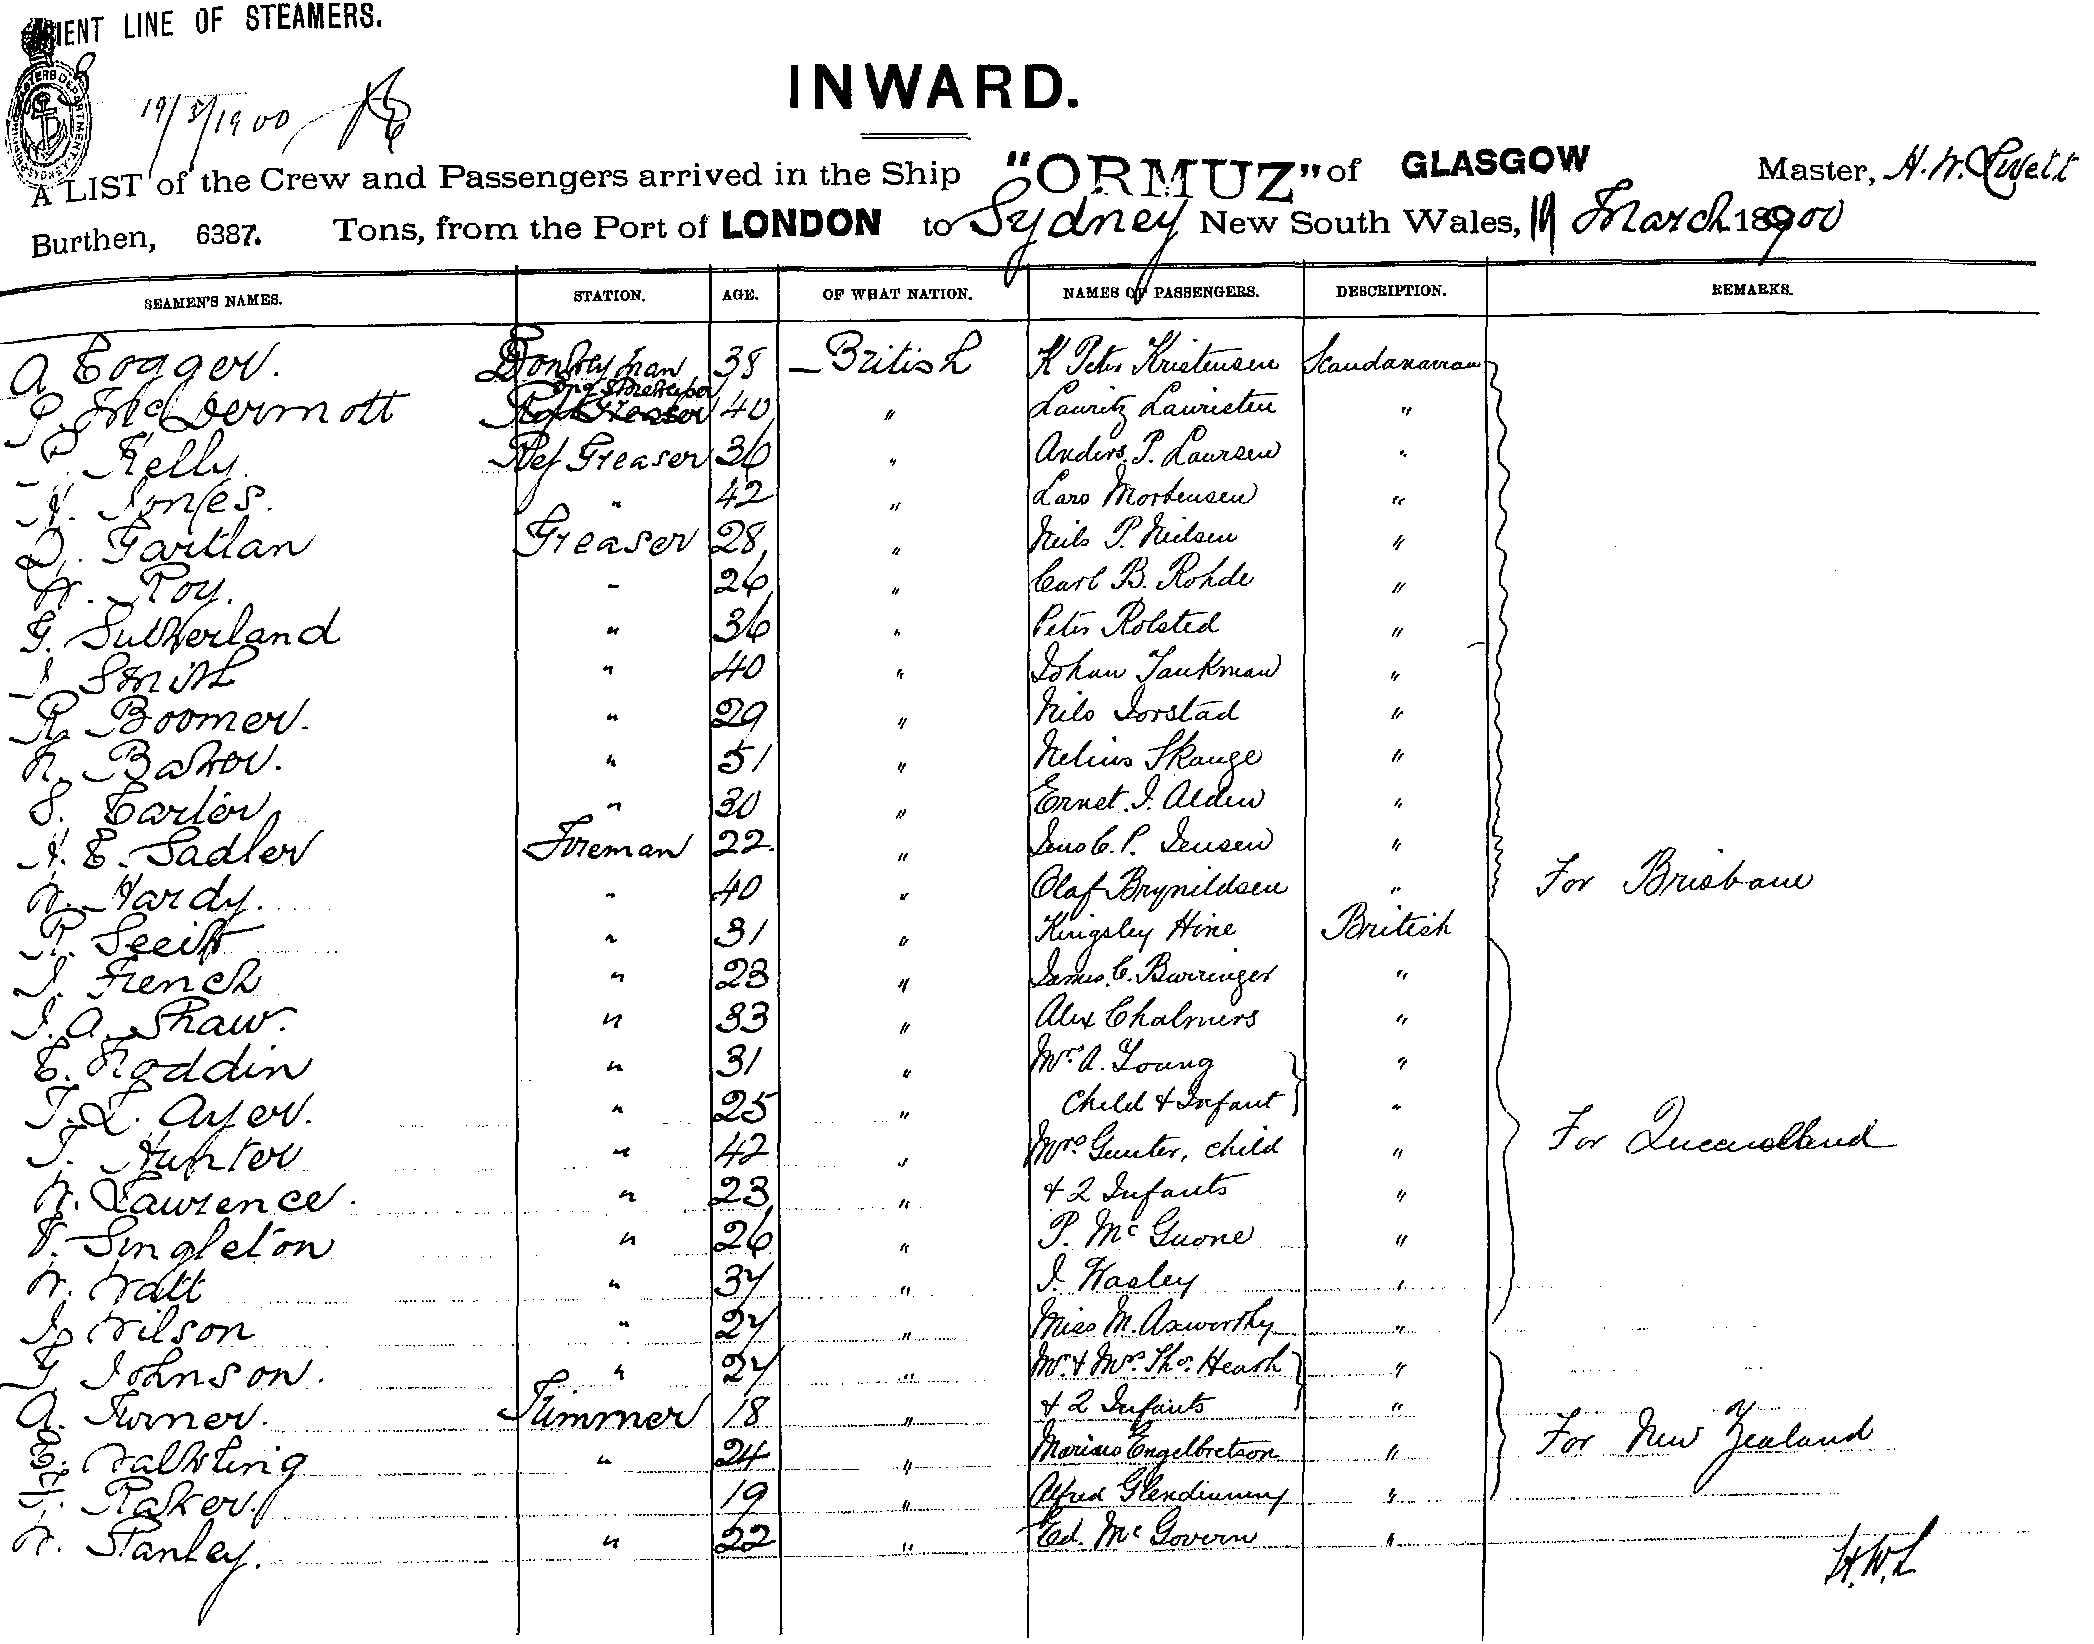 ORIENT LINE OF STEAMERS.
19/3/1900
INWARD.
A LIST of the Crew and Passengers arrived in the Ship "ORMUZ" of GLASGOW Master,
Burthen, 6387. Tons, from the Port of LONDON to Sydney New South Wales, 19 March 1900
SEAMEN'S NAMES. STATION. AGE. OF WHAT NATION. NAMES OF PASSENGERS. DESCRIPTION. REMARKS.
Donkeyman 38 British K Peter Kristensen Scandanavian
P. McDermott Eng Storekeeper 40 " Lauritz Lauristen "
Kelly. Ref Greaser 36 " Anders. P. Laursen "
H. Jones. " 42 " Lars Mortensen "
D. Gartlan Greaser 28 " Neils P. Neilsen "
W. Roy. " 26 " Carl B. Rohde "
G. Sutherland " 36 " Peter Rolsted "
J. Smith " 40 " Johan Taukman "
R. Boomer. " 29 " Nils Jorstad "
Baker. " 51 " Nelius Skauge "
S. Carter " 30 " Ernet. J. Alden "
H. E. Sadler Fireman 22 " Jens C. P. Jensen "
W. Hardy. " 40 " Olaf Brynildsen " For Brisbane
R. " 31 " Kingsley Hine British
J. French " 23 " James. C. Barringer "
J. A. Shaw. " 33 " Alex Chalmers "
C. Roddin " 31 " Mrs A. Young "
T. L. Ayer. " 25 " Child & Infant "
T. Hunter " 42 " Mrs Gunter, child " For Queensland
W. Lawrence. " 23 " & 2 Infants "
Singleton " 26 " P. McGuone "
W. Watt " 37 " J. Wasley "
J. Wilson " 27 " Miss M. Axworthy "
G Johnson. " 27 " Mr & Mrs Thos. Heash "
A. Turner. Trimmer 18 " & 2 Infants "
" 24 " Marius Engelbretson " For New Zealand
Rasker. 19 " Alfred Glendinning "
W. Stanley. " 22 " Ed. McGovern "
H.W.L